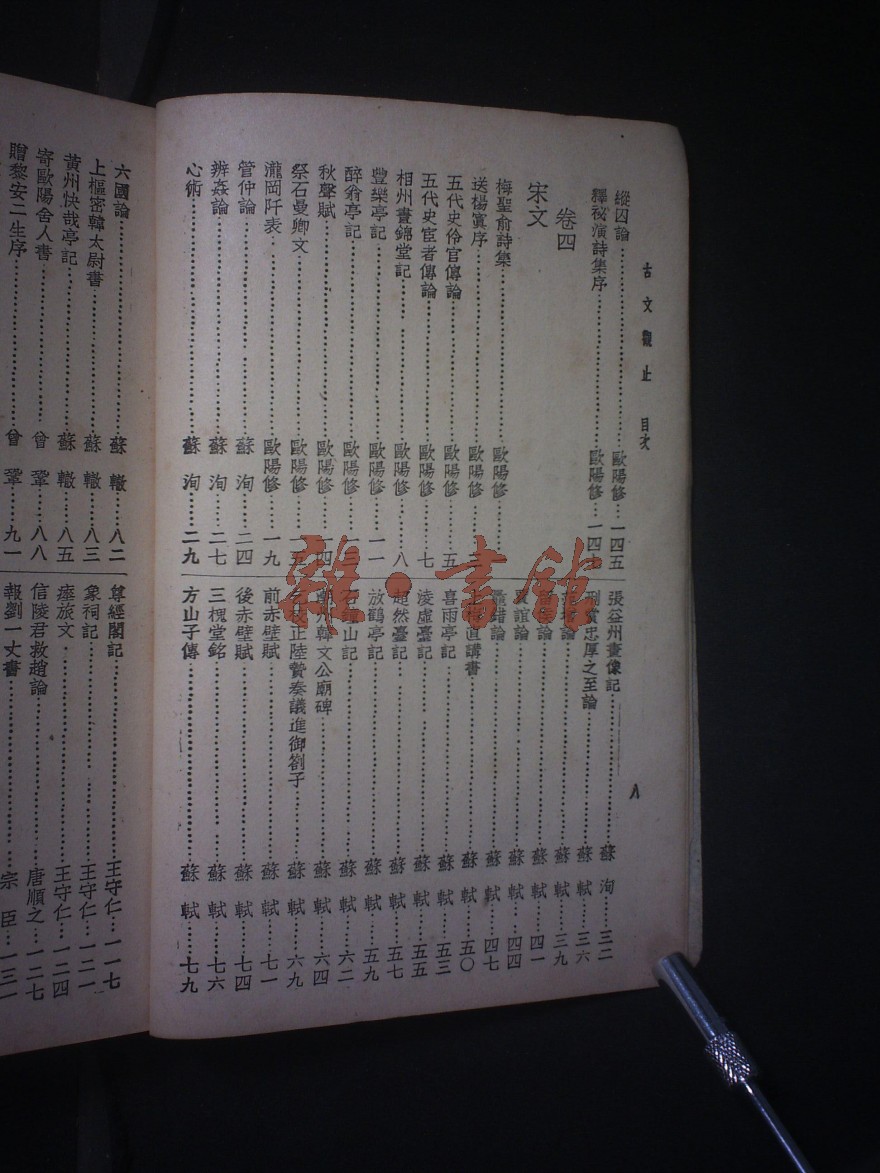 古文觀止 目次
八
縱囚論 歐陽修 一四五
釋祕演詩集序 歐陽修 一四七
卷四
宋文
梅聖俞詩集 歐陽修
送楊寘序 歐陽修 三
五代史伶官傳論 歐陽修 五
五代史宦者傳論 歐陽修 七
相州晝錦堂記 歐陽修 八
豐樂亭記 歐陽修 一一
醉翁亭記 歐陽修 一三
秋聲賦 歐陽修 一四
祭石曼卿文 歐陽修 一五
瀧岡阡表 歐陽修 一九
管仲論 蘇洵 二四
辨姦論 蘇洵 二七
心術 蘇洵 二九
張益州畫像記 蘇洵 三二
刑賞忠厚之至論 蘇軾 三六
論 蘇軾 三九
論 蘇軾 四一
賈誼論 蘇軾 四四
鼂錯論 蘇軾 四七
直講書 蘇軾 五〇
喜雨亭記 蘇軾 五三
淩虛臺記 蘇軾 五五
超然臺記 蘇軾 五七
放鶴亭記 蘇軾 五九
石鐘山記 蘇軾 六二
潮州韓文公廟碑 蘇軾 六四
乞校正陸贄奏議進御劄子 蘇軾 六九
前赤壁賦 蘇軾 七一
後赤壁賦 蘇軾 七四
三槐堂銘 蘇軾 七六
方山子傳 蘇軾 七九
六國論 蘇轍 八二
上樞密韓太尉書 蘇轍 八三
黃州快哉亭記 蘇轍 八五
寄歐陽舍人書 曾鞏 八八
贈黎安二生序 曾鞏 九一
尊經閣記 王守仁 一一七
象祠記 王守仁 一二一
瘞旅文 王守仁 一二四
信陵君救趙論 唐順之 一二七
報劉一丈書 宗臣 一三一
雜·書館